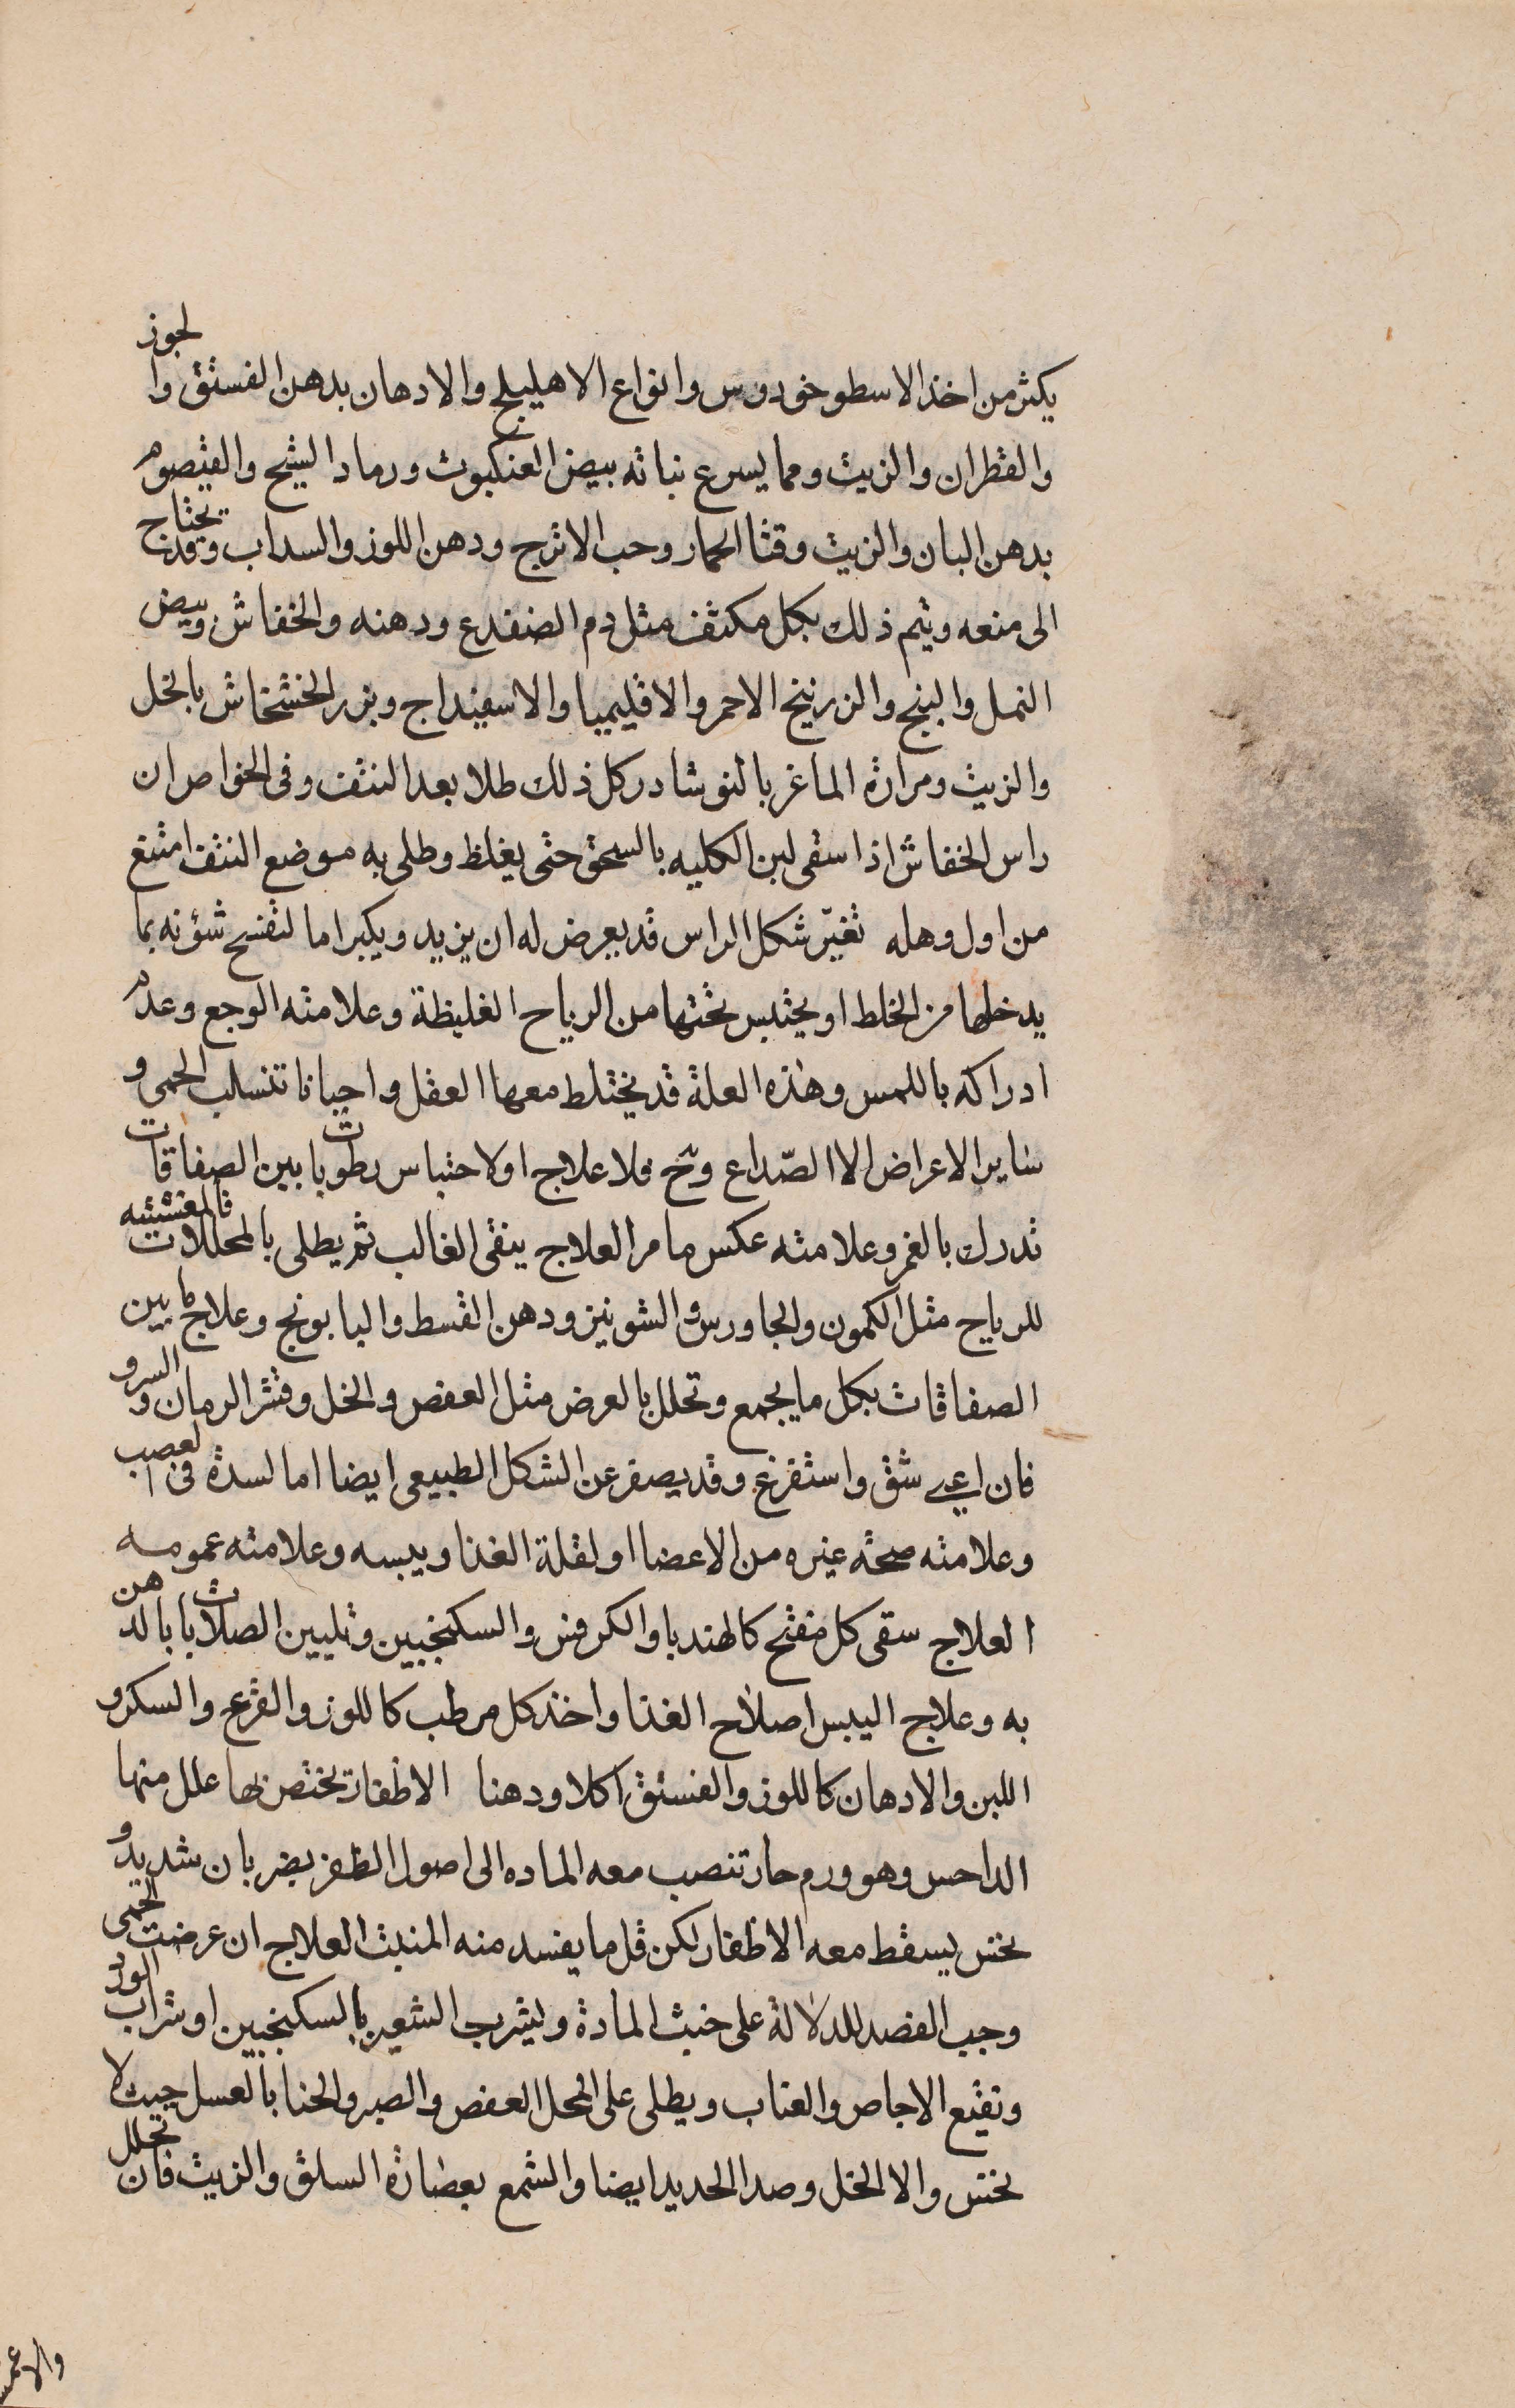 يكثر من اخذ الاسطوخودوس وانواع الاهليلج والادهان بدهن الفستق والجوز
والقطران والزيت ومما يسرع نباته بيض العنكبوت ورماد الشيح والقيصوم
بدهن البان والزيت وقثا الحمار وحب الاترج ودهن اللوز والسداب وقد يحتاج
الى منعه ويتم ذلك بكل مكثف مثل دم الضفدع ودهنه والخفاش وبيض
النمل والبنج والزرنيخ الاحمر والاقليميا والاسفيداج وبزر الخشخاش بالخل
والزيت ومرارة الماغر بالنوشادر كل ذلك طلا بعد النتف وفى الخواص ان
راس الخفاش اذا سقى لبن الكلبه بالسحق حتى يغلظ وطلى به موضع النتف امتنع
من اول وهله تغيّر شكل الراس قد يعرض له ان يزيد ويكبر اما لتفسح شؤنه بما
يدخلها من الخلط او يحتبس تحتها من الرياح الغليظة وعلامته الوجع وعدم
ادراكه باللمس وهذه العلة قد يختلط معها العقل واحيانا تنسلب الحمى و
ساير الاعراض الا الصّداع وح فلا علاج او لاحتباس رطوبات بين الصفاقات
تدرك بالغمز وعلامته عكس ما مر العلاج ينقى الغالب ثم يطلى بالمحللات فالمفشيه
للرياح مثل الكمون والجاورس والشونيز ودهن القسط والبابونج وعلاج ما بين
الصفاقات بكل ما يجمع وتحلل بالعرض مثل العفص والخل وقشر الرمان والسرو
فان اعيى شق واستفرغ وقد يصغر عن الشكل الطبيعى ايضا اما لسدة فى العصب
وعلامته صحة غيره من الاعضا او لقلة الغذا ويبسه وعلامته عمومه
العلاج سقى كل مفتح كالهندبا والكرفس والسكنجبين وتليين الصلابات بالدهن
به وعلاج اليبس اصلاح الغذا واخذ كل مرطب كاللوز والقرع والسكر و
اللبن والادهان كاللوز والفستق اكلا ودهنا الاظفار تختص بها علل منها
الداحس وهو ورم حار تنصب معه الماده الى اصول الظفر بضربان شديد و
نخس يسقط معه الاظفار لكن قل ما يفسد منه المنبت العلاج ان عرضت الحمى
وجب الفصد للدلالة على خبث المادة ويشرب الشعير بالسكنجبين او شراب الورد
ونقيع الاجاص والعناب ويطلى على المحل العفص والصبر والحنا بالعسل حيث لا
نخس والا الخل وصدا الحديد ايضا والشمع بعصارة السلق والزيت فان تحلل
والا